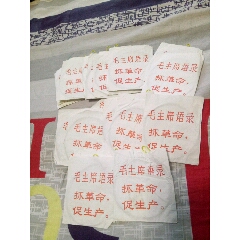 毛主席语录
抓革命，
促生产，
毛主席语录
抓革命
促生产
毛主席语录
抓革命，
促生产
毛主席语录
抓革命，
促生产
毛主席语录
抓革命，
促生产